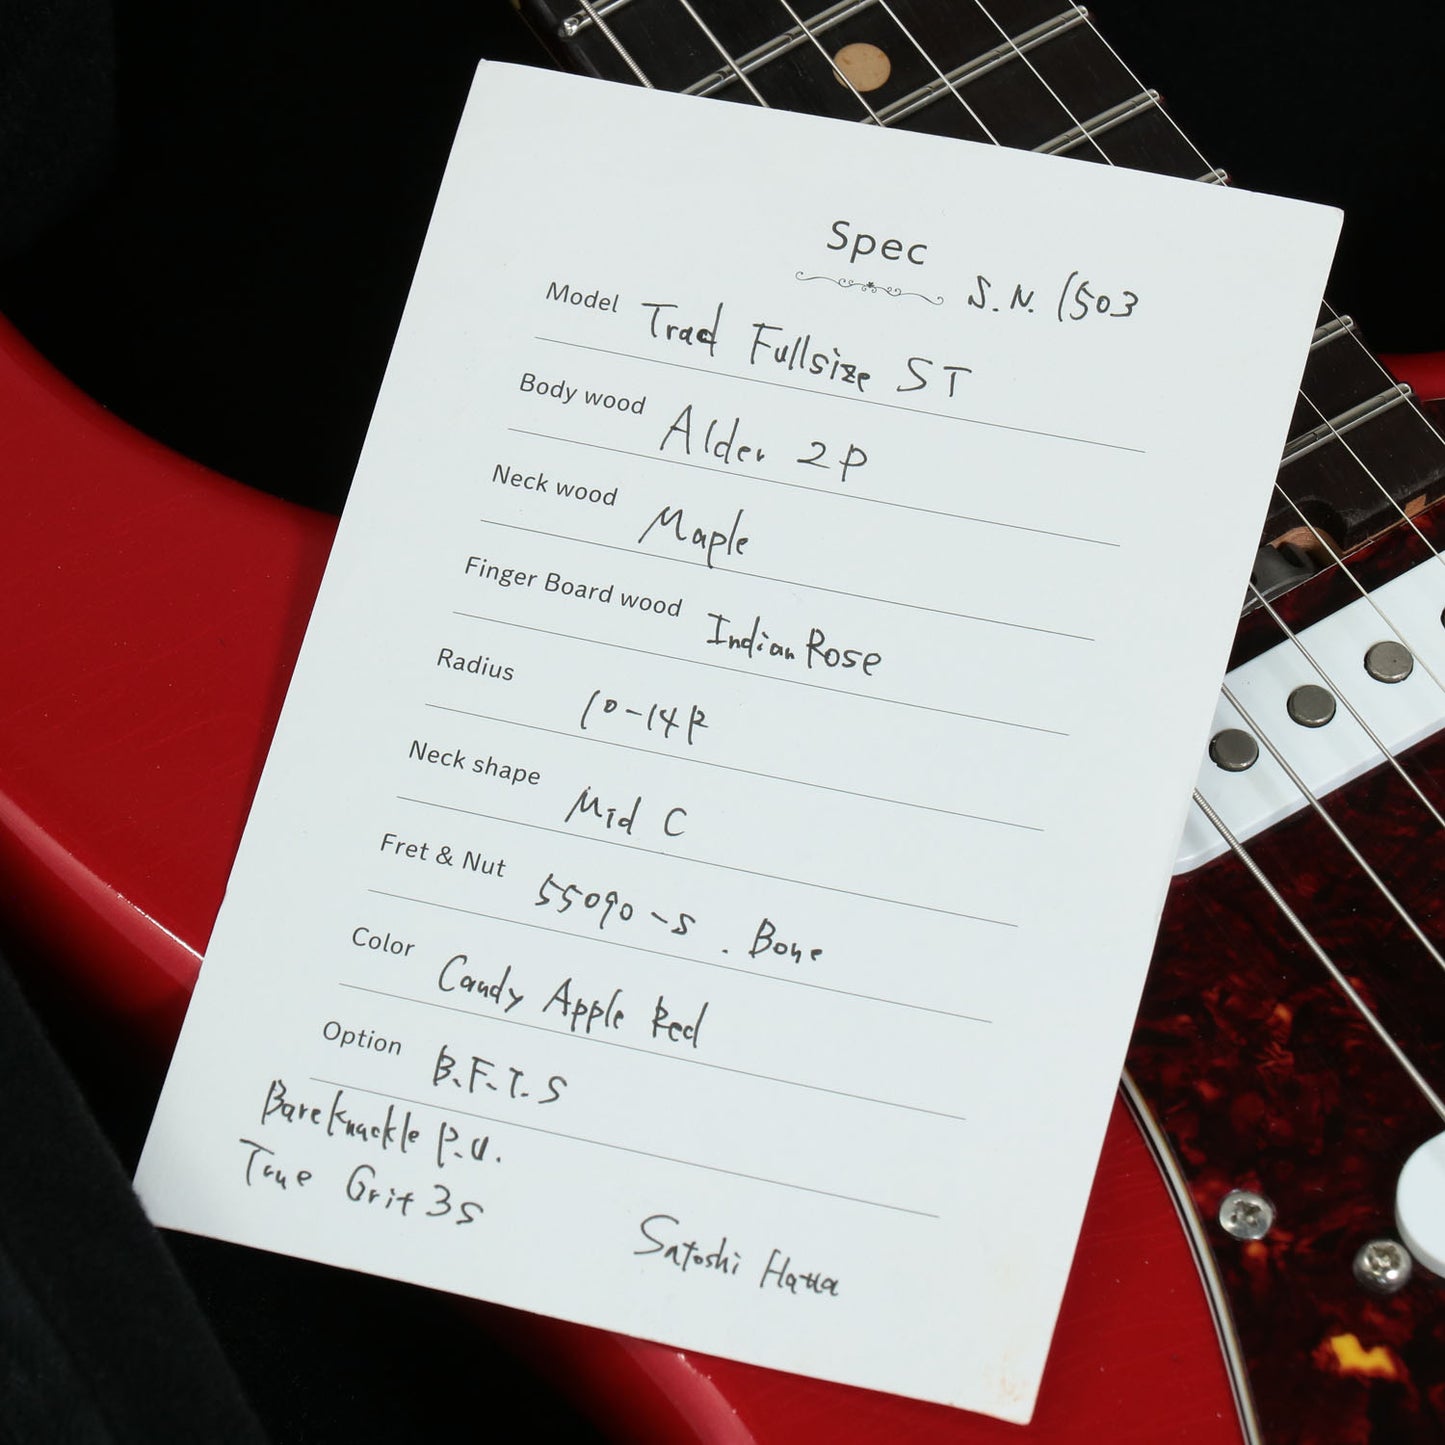 Spec
S.N. 1503
Model Trad Fullsize ST
Body wood Alder 2P
Neck wood Maple
Finger Board wood Indian Rose
Radius 10-14R
Neck shape Mid C
Fret & Nut 55090-S . Bone
Color Candy Apple Red
Option B.F.T.S
Bareknuckle P.U.
True Grit 3S
Satoshi Hatta